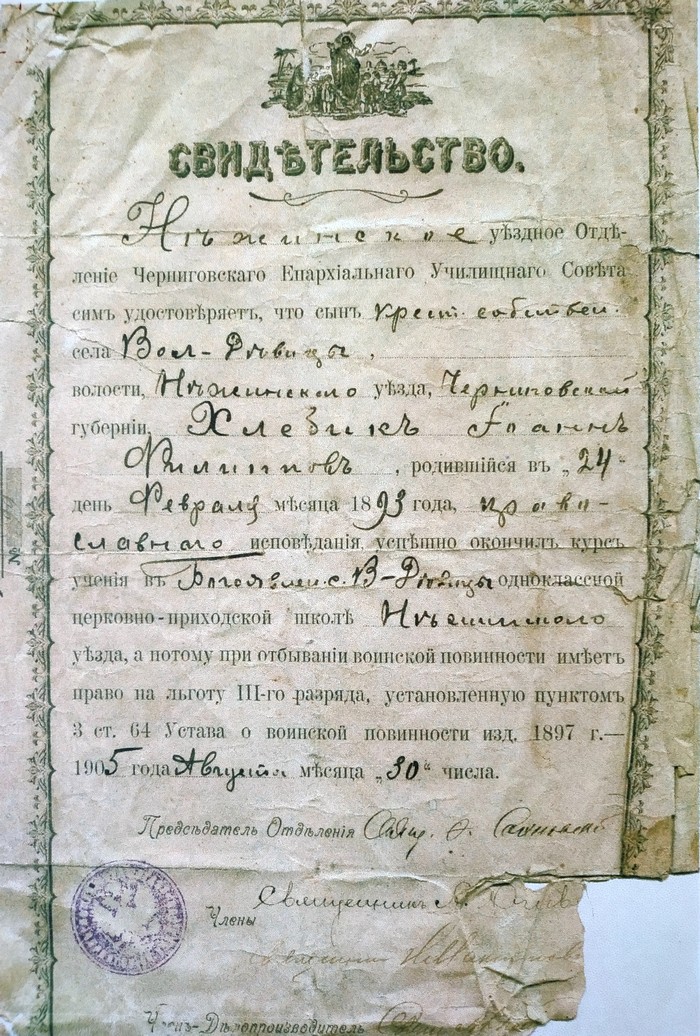 СВИДѢТЕЛЬСТВО.
Нѣжинское уѣздное Отдѣ-
леніе Черниговскаго Епархіальнаго Училищнаго Совѣта
симъ удостовѣряетъ, что сынъ крест. собствен.
села Вол-Дѣвицы,
волости, Нѣжинского уѣзда, Черниговской
губерніи, Хлебикъ Іоаннъ
Филиповъ, родившійся въ „24"
день Февраля мѣсяца 1893 года, право-
славного исповѣданія, успѣшно окончилъ курсъ
ученія въ Богоявлен. с. В-Дѣвицы одноклассной
церковно-приходской школѣ Нѣжинского
уѣзда, а потому при отбываніи воинской повинности имѣетъ
право на льготу III-го разряда, установленную пунктомъ
3 ст. 64 Устава о воинской повинности изд. 1897 г.—
1905 года Августа мѣсяца „30" числа.
Предсѣдатель Отдѣленія Свящ.
Священникъ
Члены
Членъ-Дѣлопроизводитель
№